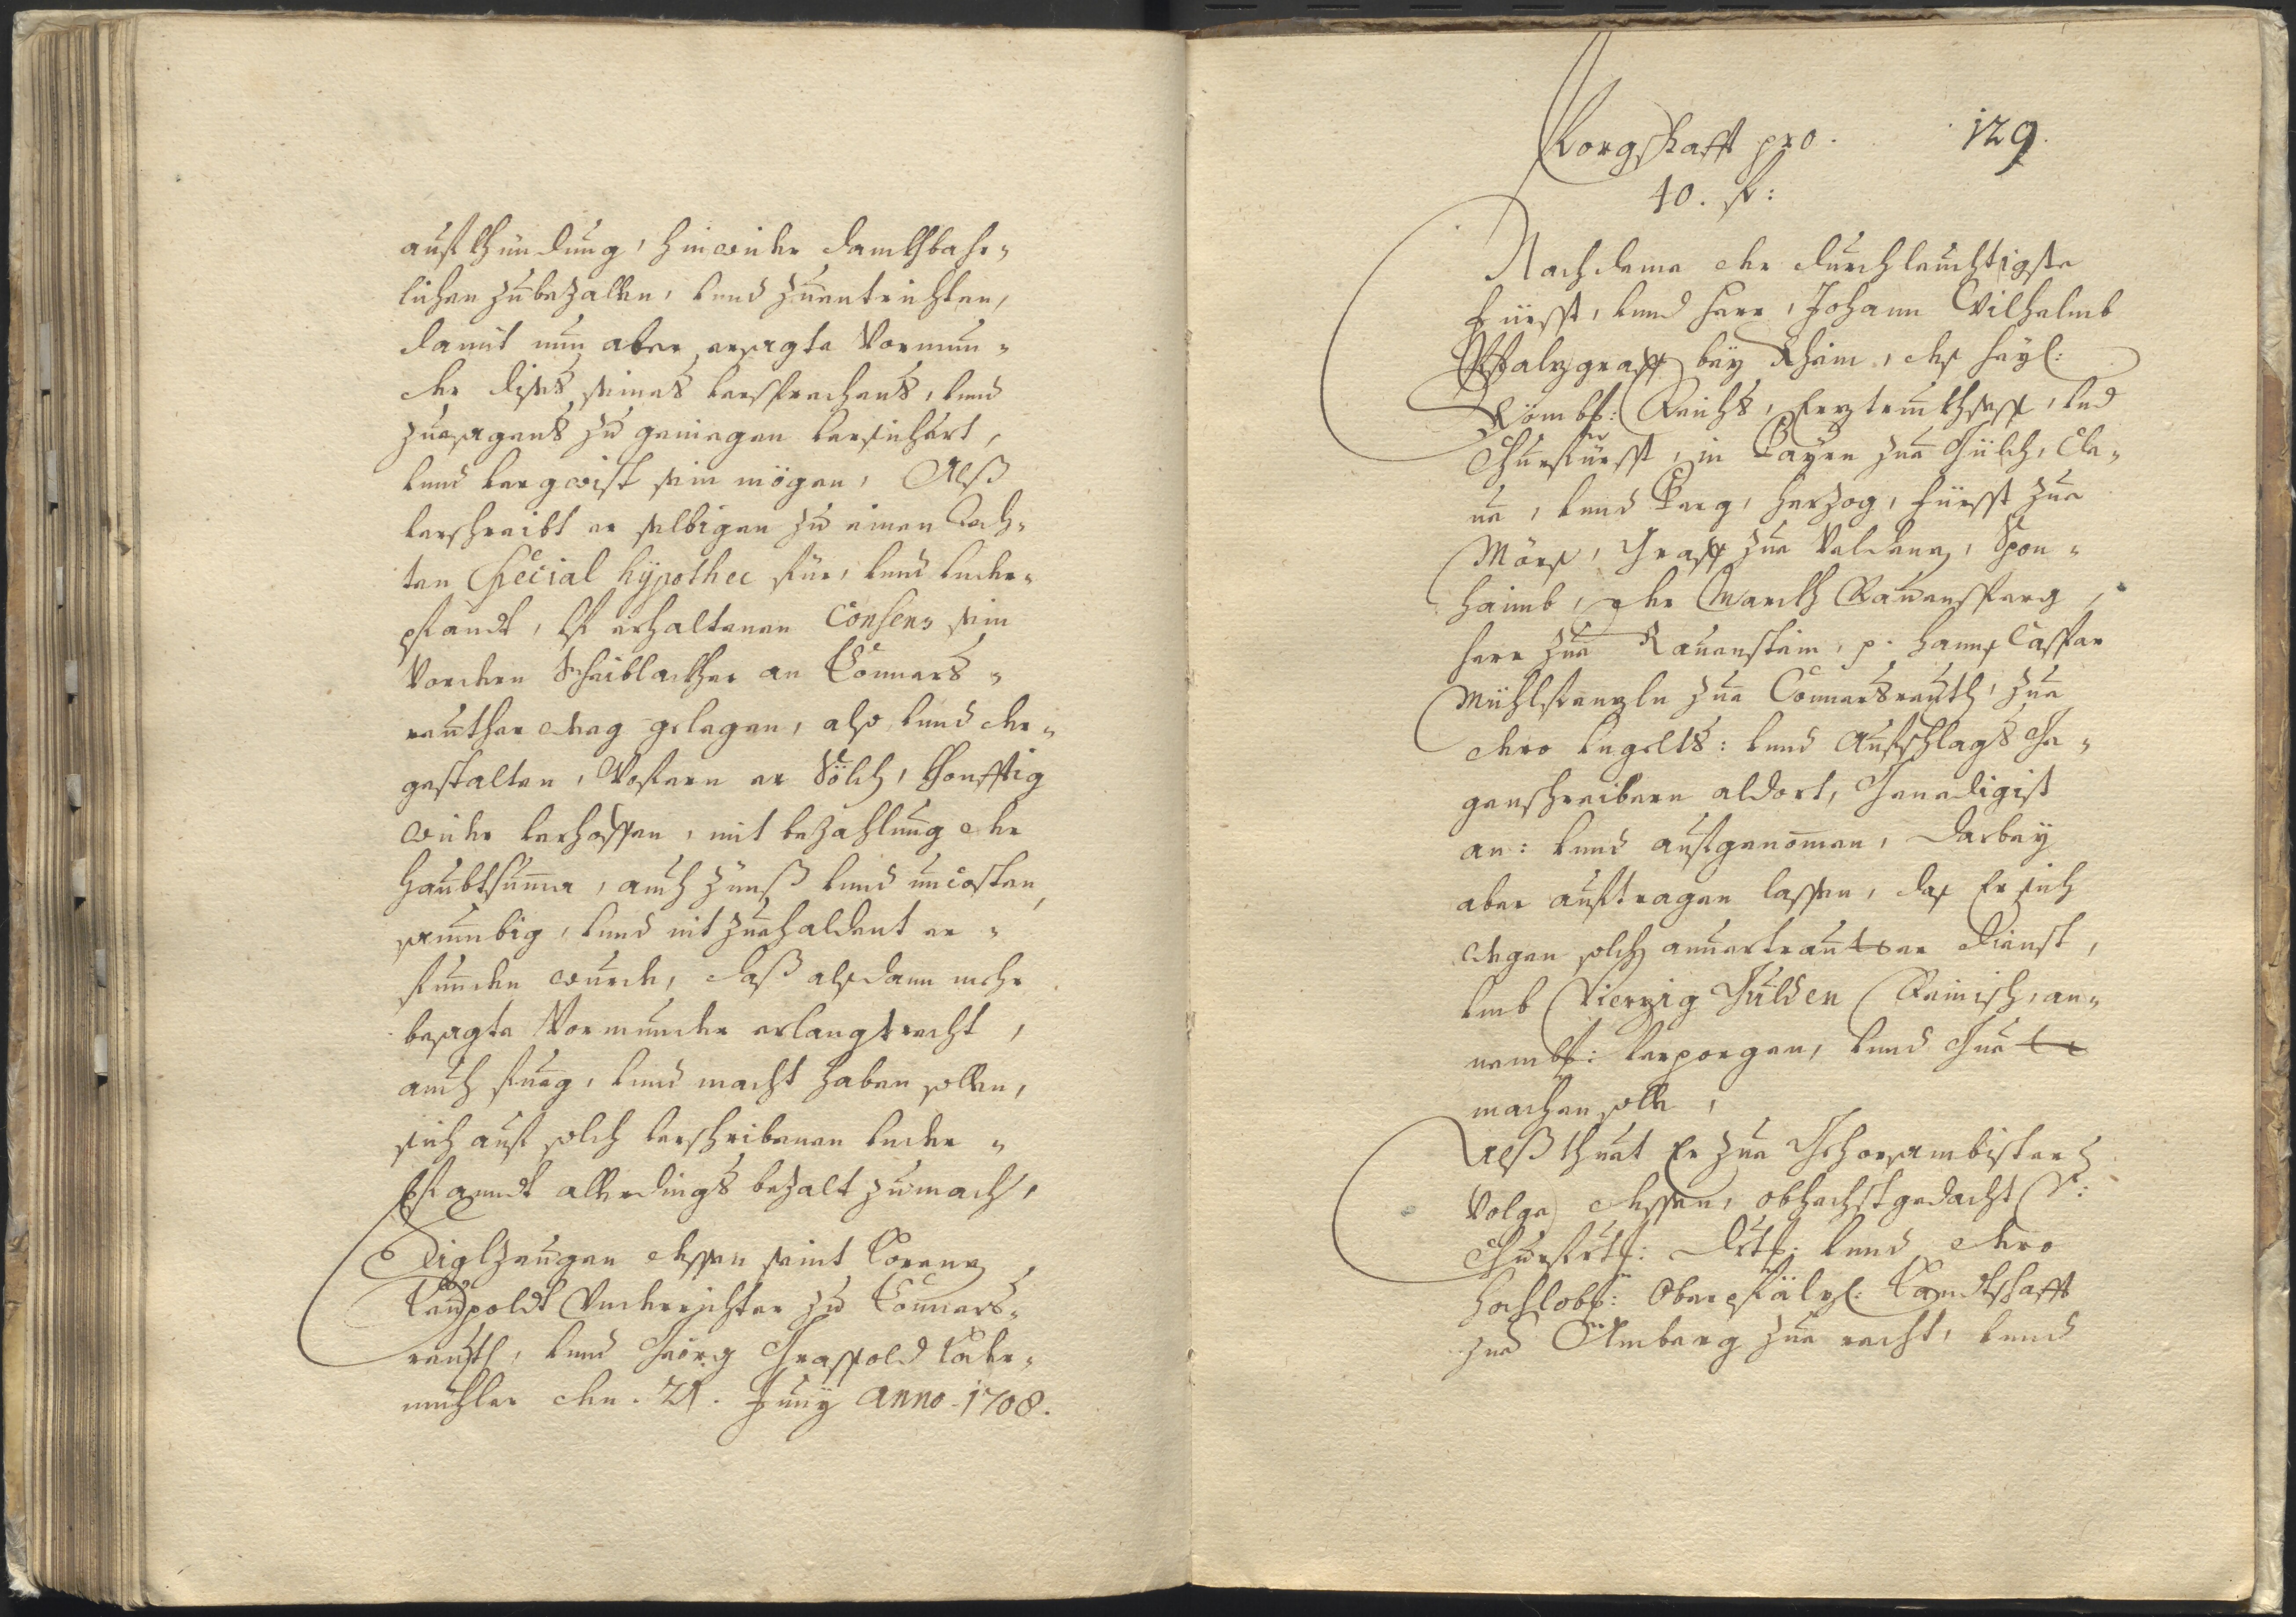 aufkhündung, hinwider danckhbahr-
lichen zubezallen, vnnd zuentrichten,
damit nun aber ersagte Vormun-
der dises seines versprechens, vnnd
zuesagens zu geniegen versichert,
vnnd vergwist sein mögen, Alß
verschreibt er selbigen zu einen Rech-
ten Special hÿpothec für, vnnd vnder-
pfandt, vf erhaltenen Consens sein
Vordern Scheiblackher an Connerß-
reuther weeg gelegen, also vnnd der-
gestalten, Wofern er Sölch, khonfftig
wider verhoffen, mit bezahlung der
haubtsuma, auch Zünß vnnd uncosten,
saumbig, vnnd nit zuehaldent er-
funden wurde, daß alsdann mehr
besagte Vormunder erlangt recht,
auch fueg, vnnd macht haben sollen,
sich auß solch verschribenen vnder-
pfanndt allerdings bezalt zumach,
Siglzeugen dessen seint Lorenz
Leupoldt Vnderrichter zu Conners-
reuth, vnnd Geörg Graffold
mühler den. 21. Junÿ anno. 1708.
Borgschafft pro. 129.
40. fl:
Nachdeme der durchleuchtigste
Fürst, vnnd herr, Johann Wilhelmb
Pfalzgraff beÿ Rhein, des heÿl:
Römb: Reichs, Erztruckhsess, vnd
Churfürst, in Bayrn zue Gülch, Cle-
ue, vnnd Berg, herzog, Fürst zue
Mörs, Graff zue Veldenz, Spon-
haimb, der Marckh Rauensperg,
herr zue Rauenstein, p. hanns Caspar
Mühlstenzln zue Connersreuth, zue
dero Vngelts: vnnd Aufschlags Ge-
genschreibern aldort, Genedigist
an: vnnd aufgenomen, darbeÿ
aber auftragen lassen, das Er sich
wegen solch anuertrautter dienst,
vmb Vierzig Gulden Reinisch, an-
nembl: verporgen, vnnd Guett
machen solle,
Alß thuet Er zue Gehorsambister
Volge dessen, obhechstgedacht Sr:
Churfrtl: Drtl: vnnd dero
hochlobl: Oberpfälzl: Landtschafft
zue Amberg zue recht, vnnd